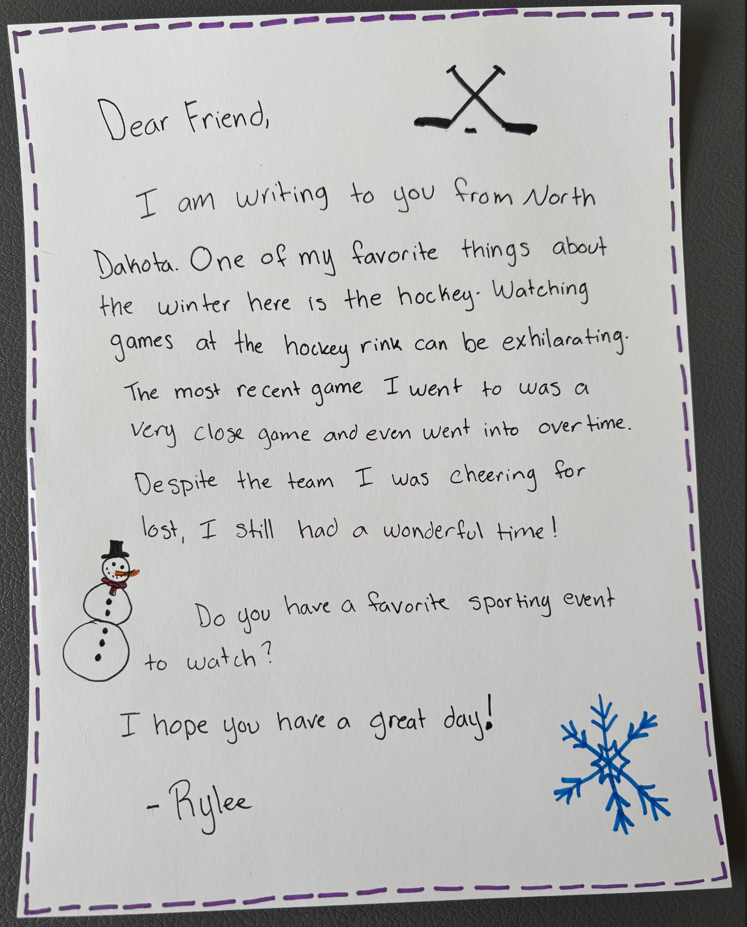 Dear Friend,
I am writing to you from North
Dakota. One of my favorite things about
the winter here is the hockey. Watching
games at the hockey rink can be exhilarating.
The most recent game I went to was a
very close game and even went into overtime.
Despite the team I was cheering for
lost, I still had a wonderful time!
Do you have a favorite sporting event
to watch?
I hope you have a great day!
- Rylee